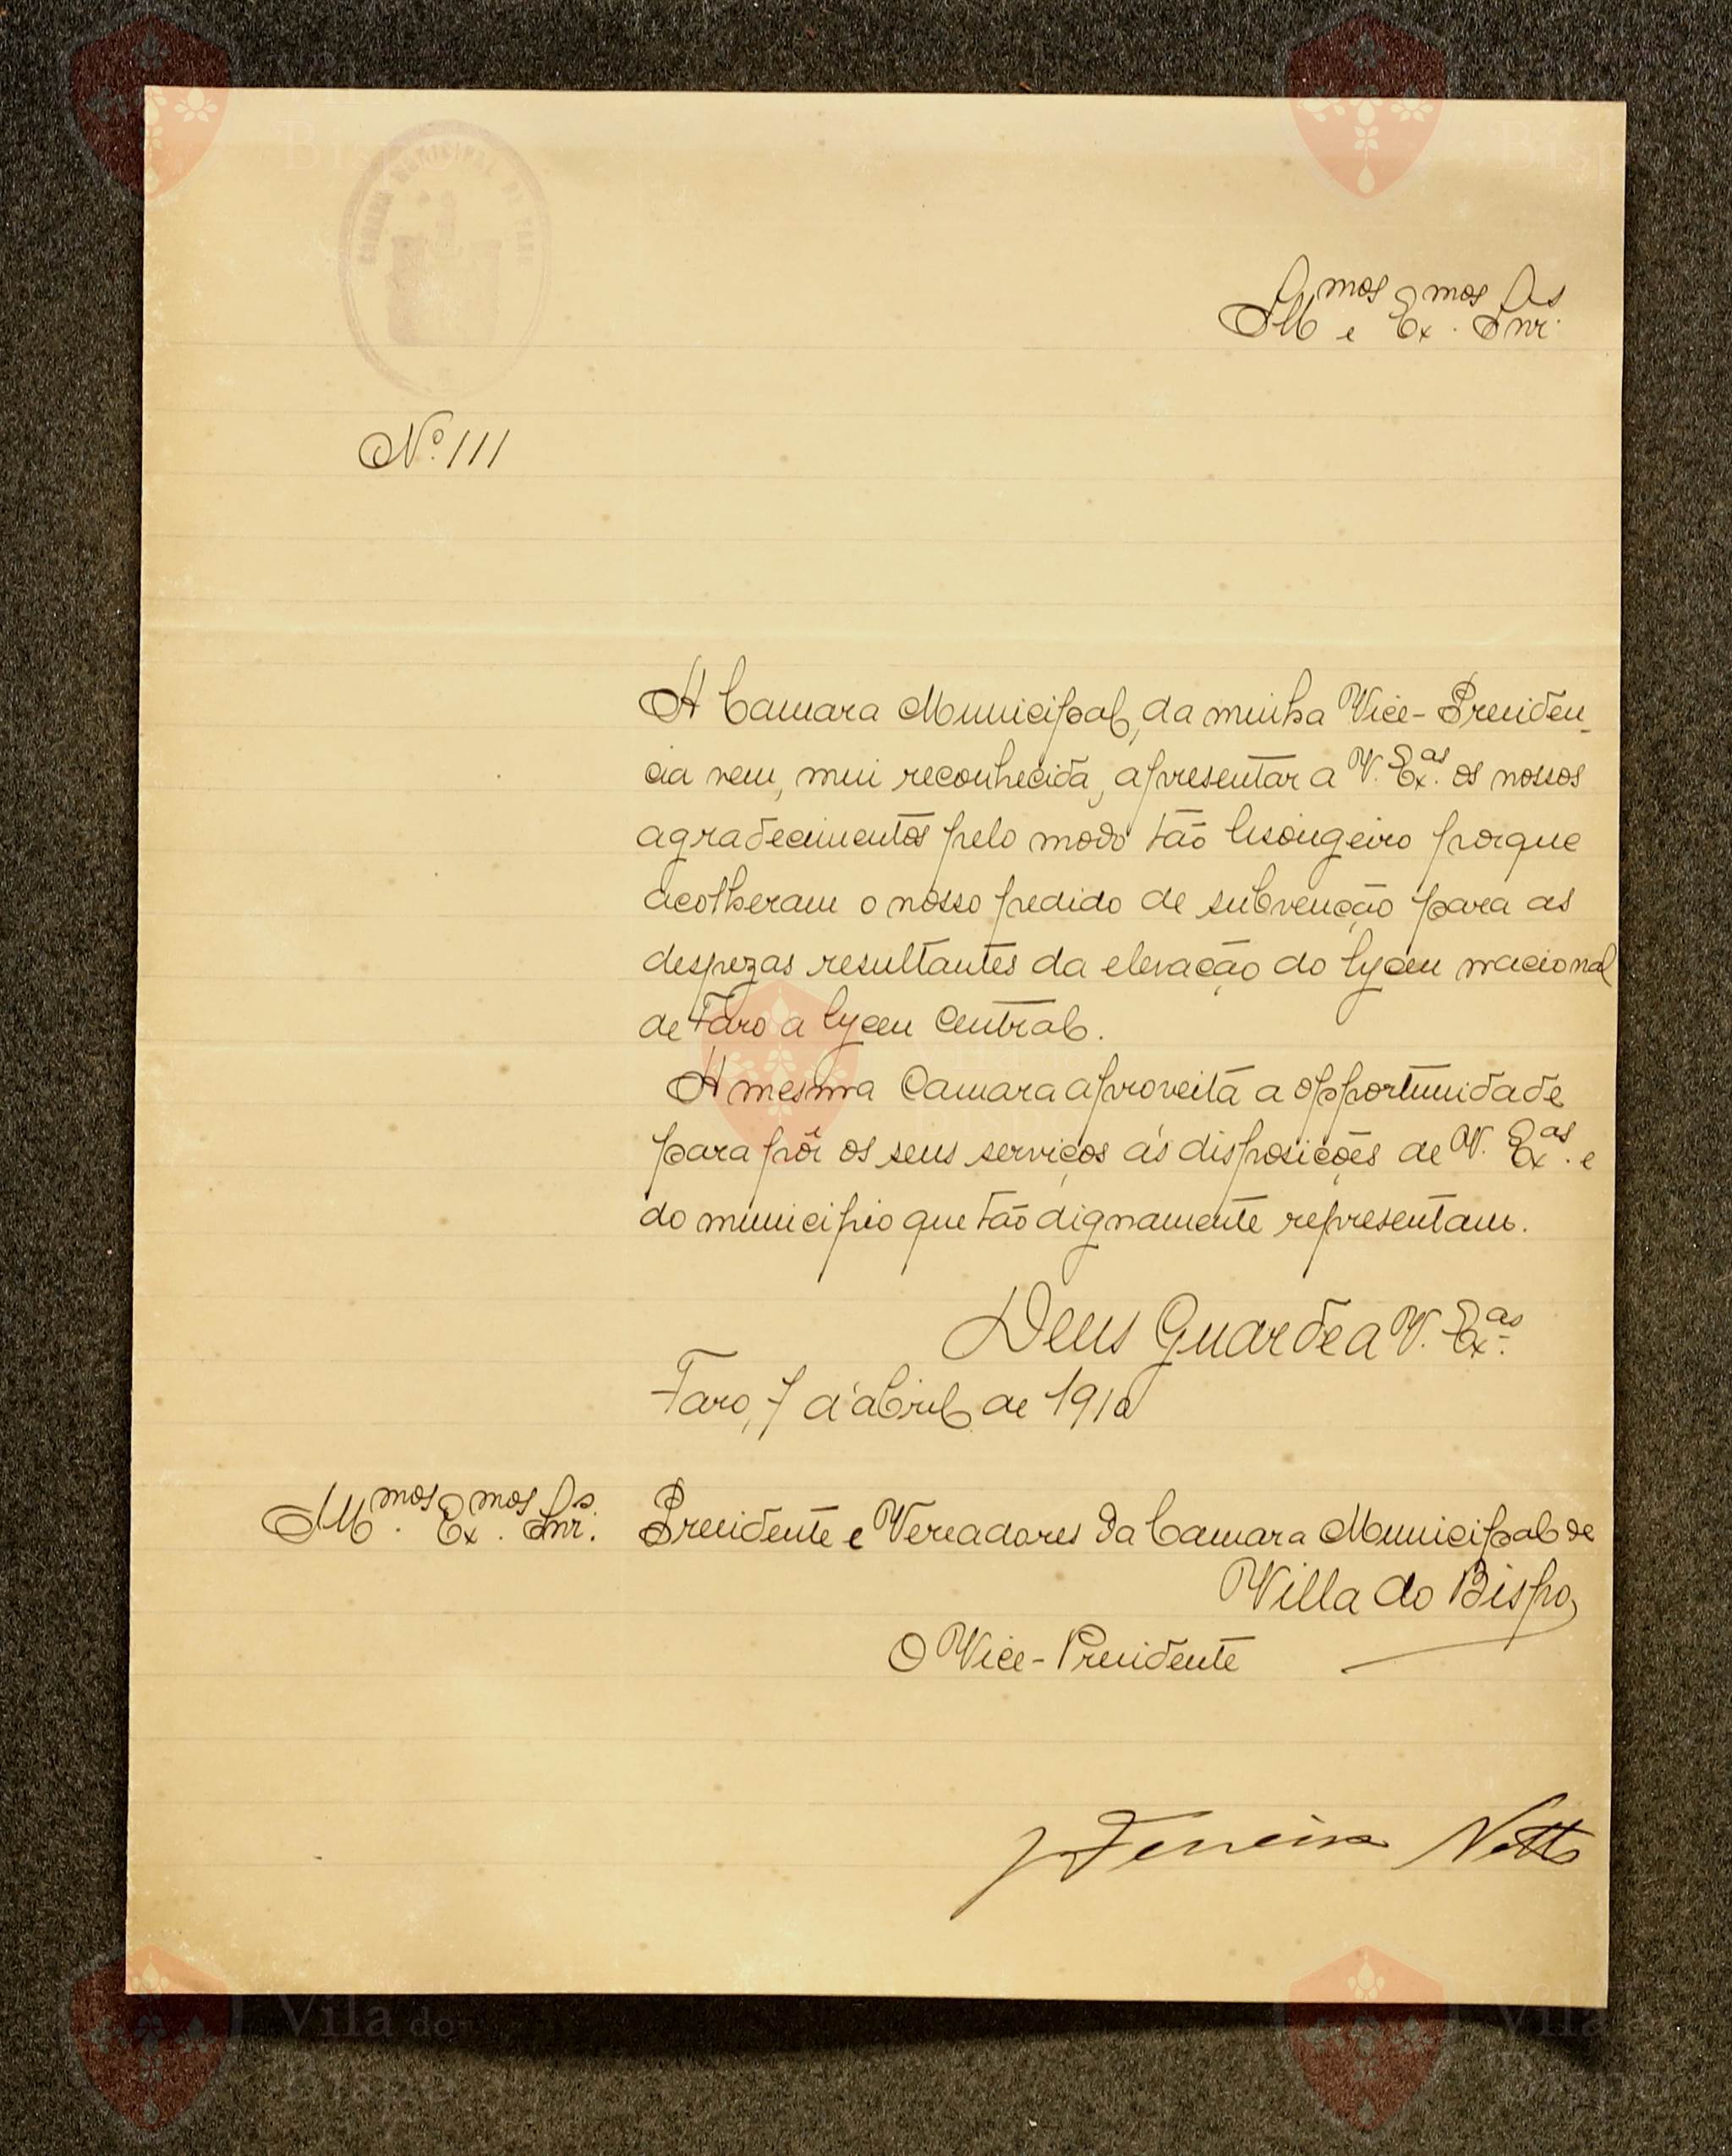 CAMARA MUNICIPAL DE FARO
Ill.mos e Ex.mos Snrs.
N.º 111
A Camara Municipal, da minha Vice-Presiden-
cia vem, mui reconhecida, apresentar a V. Ex.as os nossos
agradecimentos pelo modo tão lisongeiro porque
acolheram o nosso pedido de subvenção para as
despezas resultantes da elevação do lyceu nacional
de Faro a lyceu Central.
A mesma Camara aproveita a opportunidade
para pôr os seus serviços ás disposições de V. Ex.as e
do municipio que tão dignamente representam.
Deus Guarde a V. Ex.as
Faro, 7 d'abril de 1910
Ill.mos Ex.mos Snrs. Presidente e Vereadores da Camara Municipal de
Villa do Bispo,
O Vice-Presidente
J Ferreira Netto
Vila do
Bispo